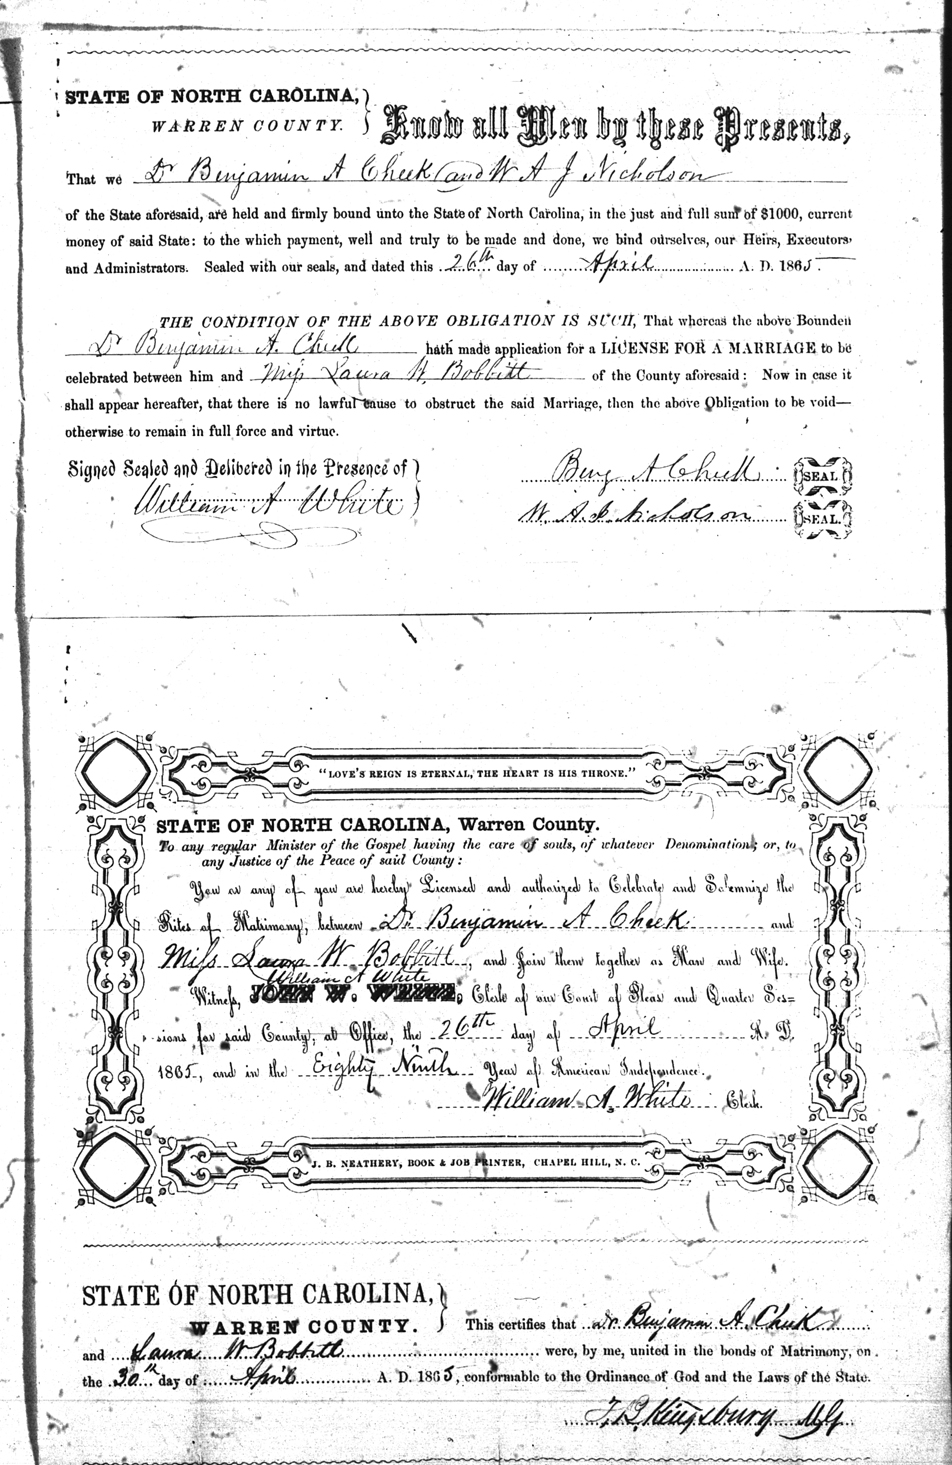 STATE OF NORTH CAROLINA,
WARREN COUNTY.
Know all Men by these Presents,
That we Dr Benjamin A Cheek and W A J Nicholson
of the State aforesaid, are held and firmly bound unto the State of North Carolina, in the just and full sum of $1000, current
money of said State: to the which payment, well and truly to be made and done, we bind ourselves, our Heirs, Executors,
and Administrators. Sealed with our seals, and dated this 26th day of April A. D. 1865.
THE CONDITION OF THE ABOVE OBLIGATION IS SUCH, That whereas the above Bounden
Dr Benjamin A. Cheek hath made application for a LICENSE FOR A MARRIAGE to be
celebrated between him and Miss Laura W. Bobbitt of the County aforesaid: Now in case it
shall appear hereafter, that there is no lawful cause to obstruct the said Marriage, then the above Obligation to be void—
otherwise to remain in full force and virtue.
Signed Sealed and Delivered in the Presence of
Benj A Cheek SEAL
William A White
W. A. J. Nicholson SEAL.
"LOVE'S REIGN IS ETERNAL, THE HEART IS HIS THRONE."
STATE OF NORTH CAROLINA, Warren County.
To any regular Minister of the Gospel having the care of souls, of whatever Denomination; or, to
any Justice of the Peace of said County:
You or any of you are hereby Licensed and authorized to Celebrate and Solemnize the
Rites of Matrimony, between Dr. Benjamin A Cheek and
Miss Laura W Bobbitt, and Join them together as Man and Wife.
William A White
Witness, JOHN W. WHITE, Clerk of our Court of Pleas and Quarter Ses=
sions for said County, at Office, the 26th day of April A. D.
1865, and in the Eighty Ninth Year of American Independence.
William A. White Clerk.
J. B. NEATHERY, BOOK & JOB PRINTER, CHAPEL HILL, N. C.
STATE OF NORTH CAROLINA,
WARREN COUNTY.
This certifies that Dr. Benjamin A. Cheek
and Laura W Bobbitt were, by me, united in the bonds of Matrimony, on
the 30th day of April A. D. 1865, conformable to the Ordinance of God and the Laws of the State.
T. B. Kingsbury M.G.